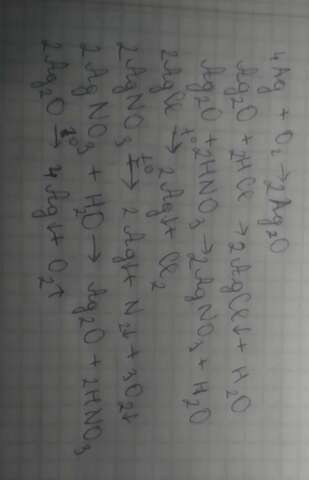 4Ag + O₂ → 2Ag₂O
Ag₂O + 2HCl → 2AgCl↓ + H₂O
Ag₂O + 2HNO₃ → 2AgNO₃ + H₂O
2AgCl t°→ 2Ag↓ + Cl₂
2AgNO₃ t°→ 2Ag↓ + N₂↓ + 3O₂↓
2AgNO₃ + H₂O → Ag₂O + 2HNO₃
2Ag₂O t°→ 4Ag↓ + O₂↑